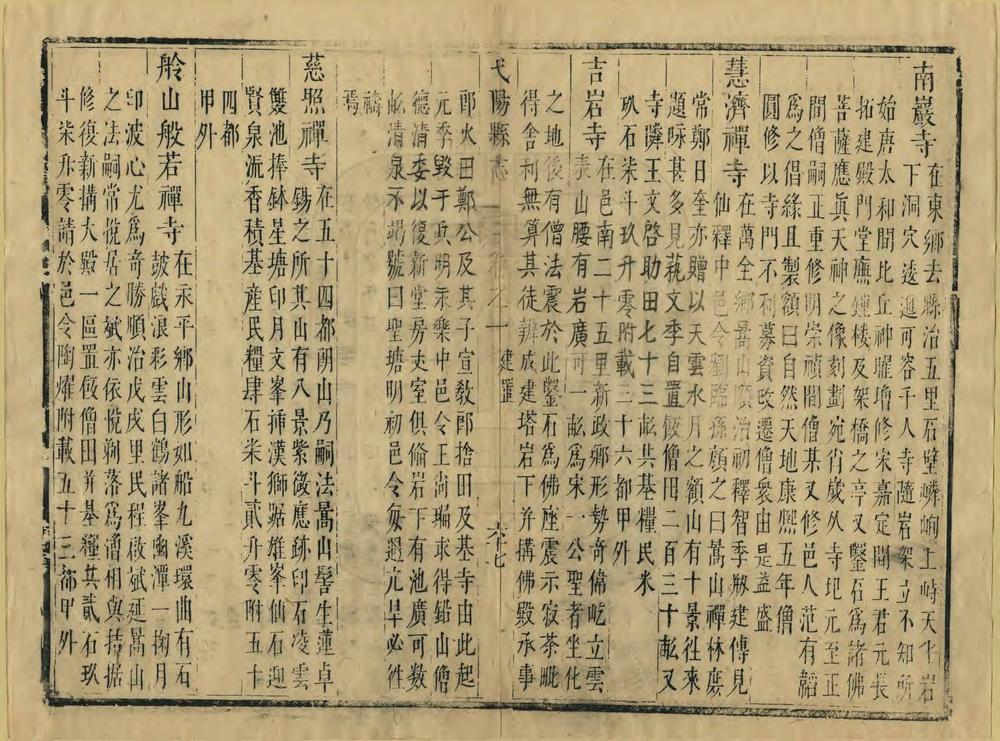 南巖寺在東鄉去縣治五里石壁嶙峋上峙天半岩
下洞穴逶迤可容千人寺隨岩架立不知所
始唐太和間比丘神曜增修宋嘉定間王君元長
拓建殿門堂廡鐘楼及架橋之亭又鑿石為諸佛
菩薩應眞天神之像刻劃宛肖歲久寺圯元至正
間僧嗣正重修明崇禎間僧某又修邑人范有韜
為之倡緣且製額曰自然天地康熙五年僧
圓修以寺門不利募資改遷僧衆由是益盛
慧濟禪寺在萬全鄉嵩山順治初釋智季剏建傳見
仙釋中邑令劉臨孫顏之曰嵩山禪林麐
常鄭日奎亦贈以天雲水月之額山有十景往來
題咏甚多見萟文李自置飯僧田二百三十畝又
寺隣王文啓助田七十三畝共基糧民米
玖石柒斗玖升零附載三十六都甲外
吉岩寺在邑南二十五里新政鄉形勢奇偉屹立雲
表山腰有岩廣可一畝為宋一公聖者坐化
之地後有僧法震於此鑿石為佛座震示寂茶毗
得舍利無算其徒辦成建塔岩下并搆佛殿承事
弋陽縣志 卷之一 建置 六十七
郎火田鄭公及其子宣敎郎捨田及基寺由此起
元季毀于兵明永樂中邑令王尚瑞求得鉛山僧
德清委以復新堂房夾室俱倚岩下有池廣可数
畝清泉不竭號曰聖塘明初邑令每遇亢旱必徃
禱焉
慈照禪寺在五十四都朝山乃嗣法嵩山髻生蓮卓
錫之所其山有八景紫薇應跡印石凌雲
雙池捧鉢星塘印月文峯揷漢獅踞雄峯仙石迎
賢泉派香積基產民糧肆石柒斗貳升零附五十
四都
甲外
舲山般若禪寺在永平鄉山形如船九溪環曲有石
皷戲浪彩雲白鶴諸峯幽潭一掬月
印波心尤爲奇勝順治戊戌里民程啟斌延嵩山
之法嗣常悅居之斌亦依悅剃落為僧相與拮据
修復新搆大殿一區置飯僧田并基糧共貳石玖
斗柒升零請於邑令陶燿附載五十三都甲外